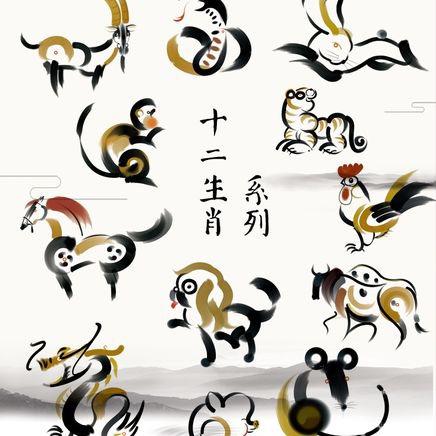 十二生肖
系列